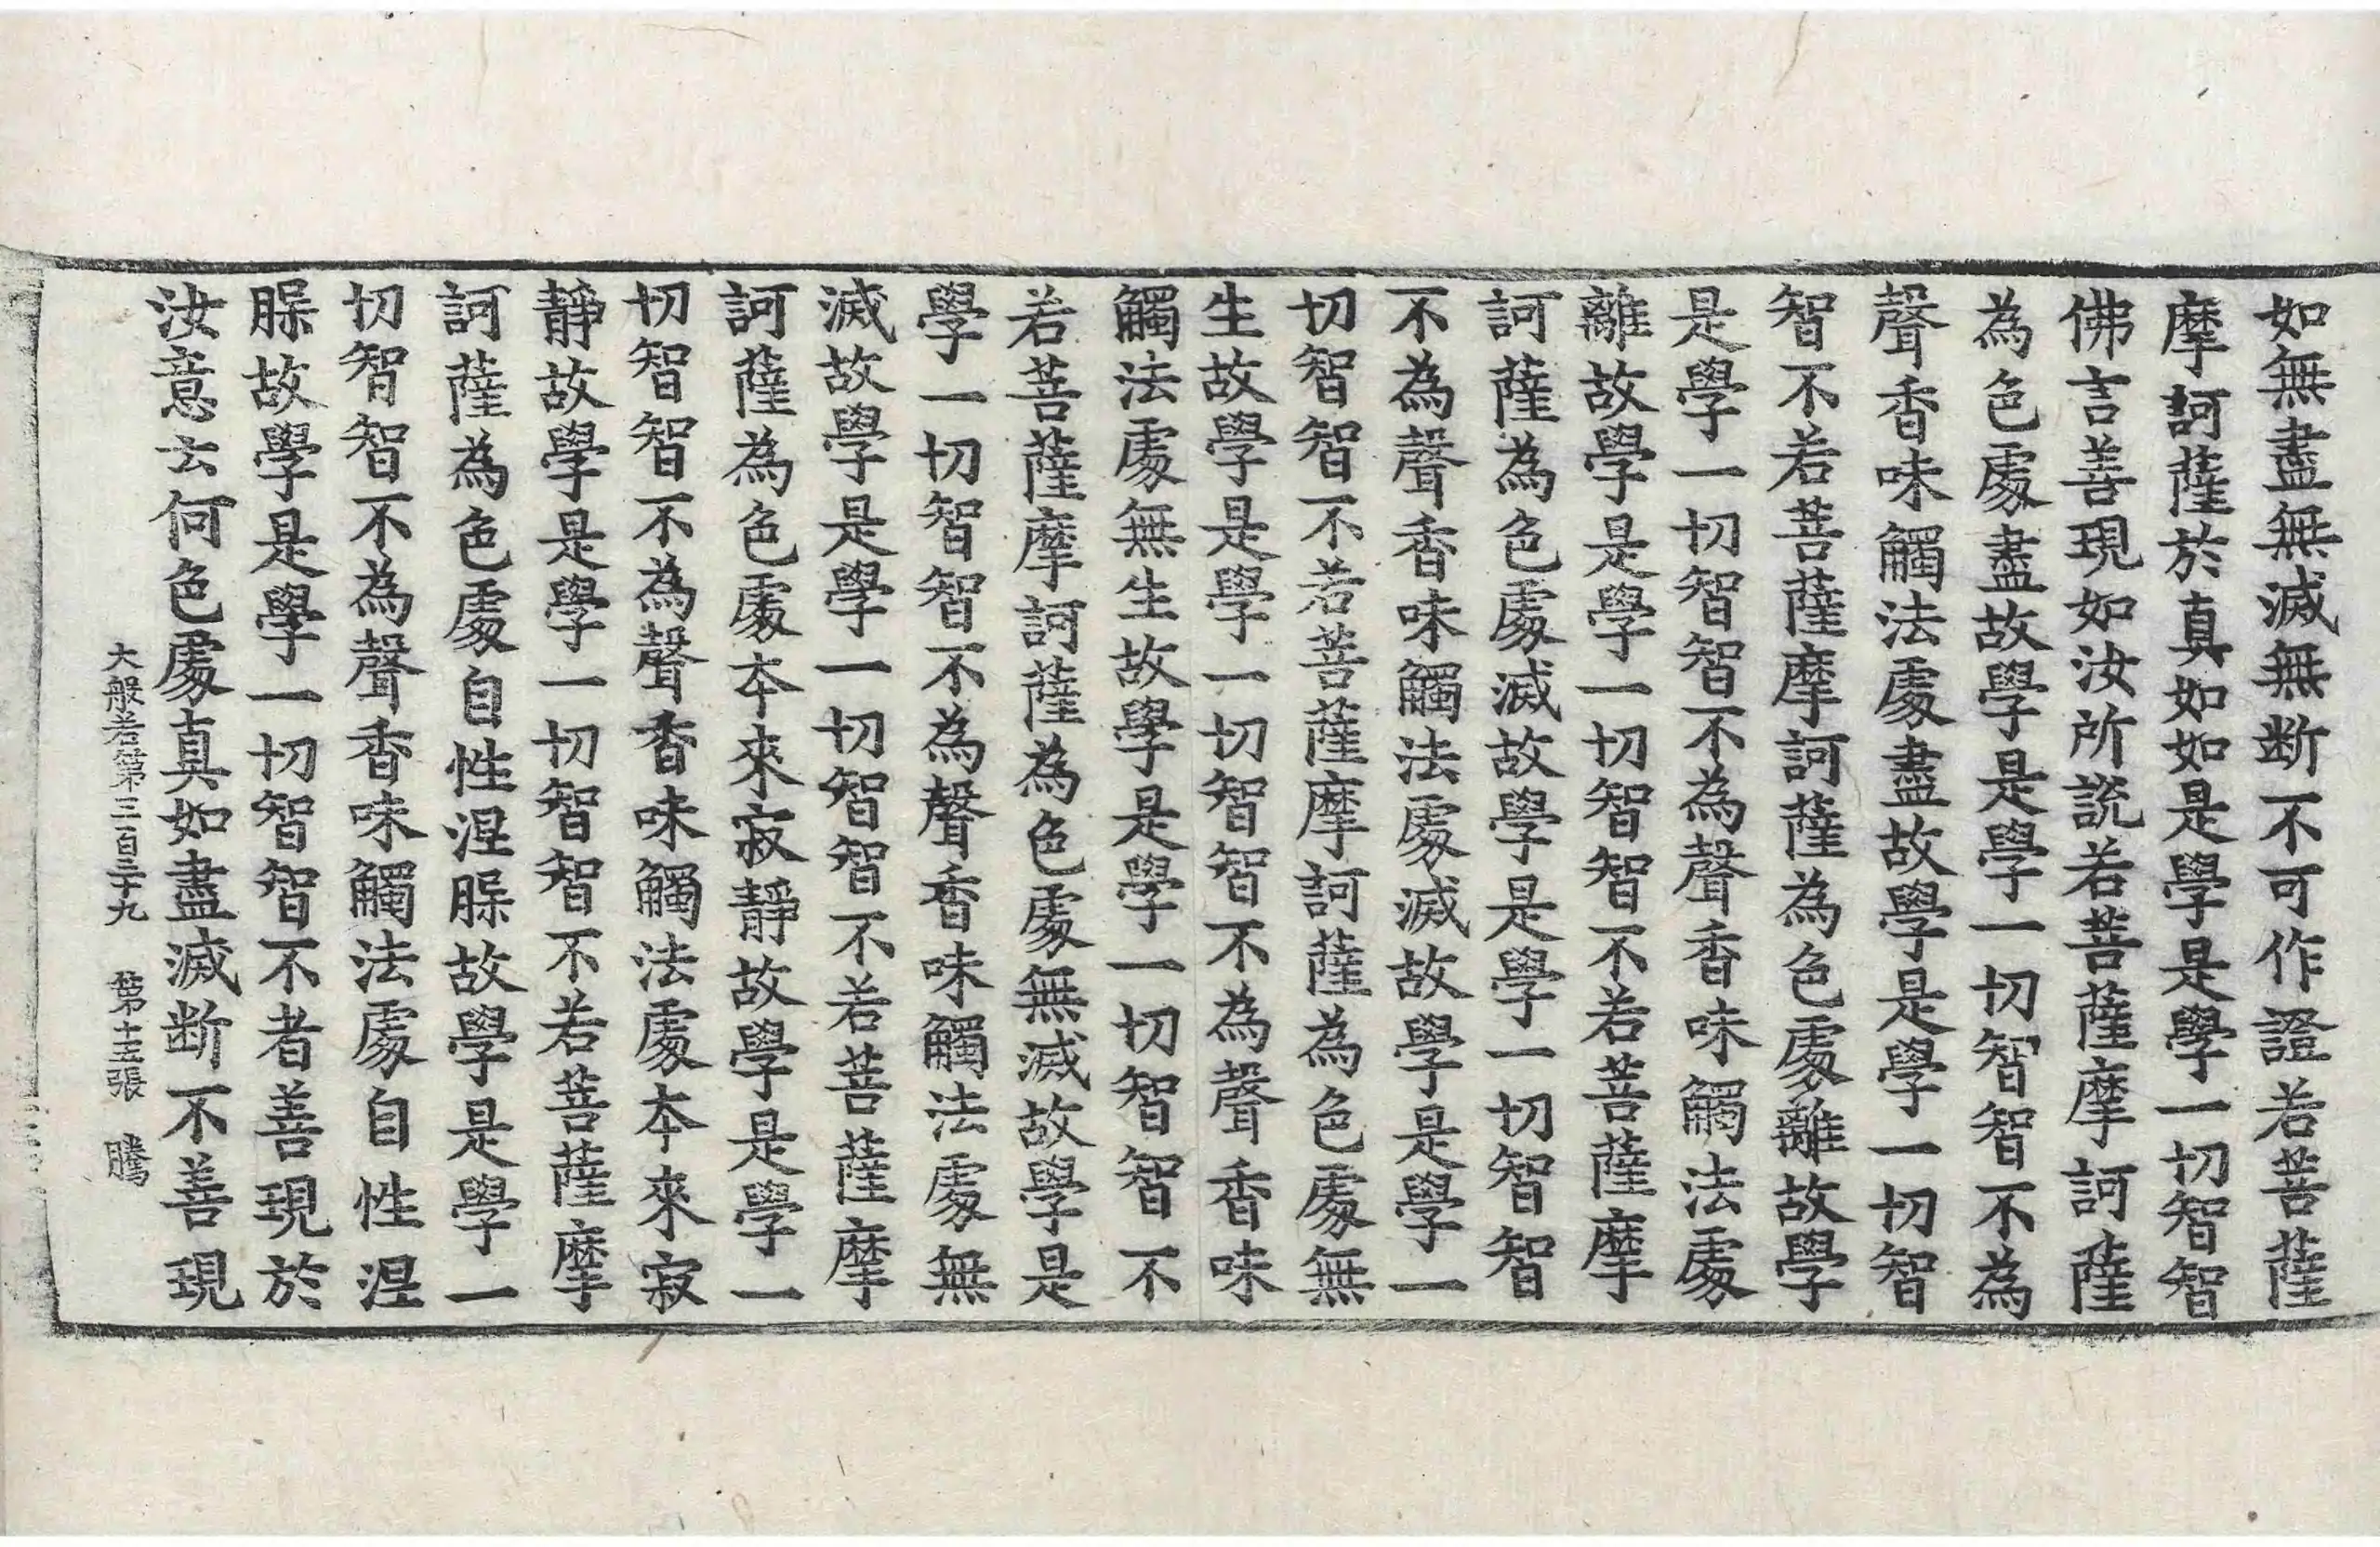 如無盡無滅無断不可作證若菩薩
摩訶薩於真如如是學是學一切智智
佛言善現如汝所說若菩薩摩訶薩
為色處盡故學是學一切智智不為
聲香味觸法處盡故學是學一切智
智不若菩薩摩訶薩為色處離故學
是學一切智智不為聲香味觸法處
離故學是學一切智智不若菩薩摩
訶薩為色處滅故學是學一切智智
不為聲香味觸法處滅故學是學一
切智智不若菩薩摩訶薩為色處無
生故學是學一切智智不為聲香味
觸法處無生故學是學一切智智不
若菩薩摩訶薩為色處無滅故學是
學一切智智不為聲香味觸法處無
滅故學是學一切智智不若菩薩摩
訶薩為色處夲來寂靜故學是學一
切智智不為聲香味觸法處夲來寂
靜故學是學一切智智不若菩薩摩
訶薩為色處自性涅䏶故學是學一
切智智不為聲香味觸法處自性涅
䏶故學是學一切智智不者善現於
汝意云何色處真如盡滅断不善現
大般若第三百三十九 第十五張 騰